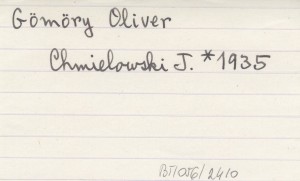 Gömöry Oliver
Chmielowski J. *1935
BT1056/2410